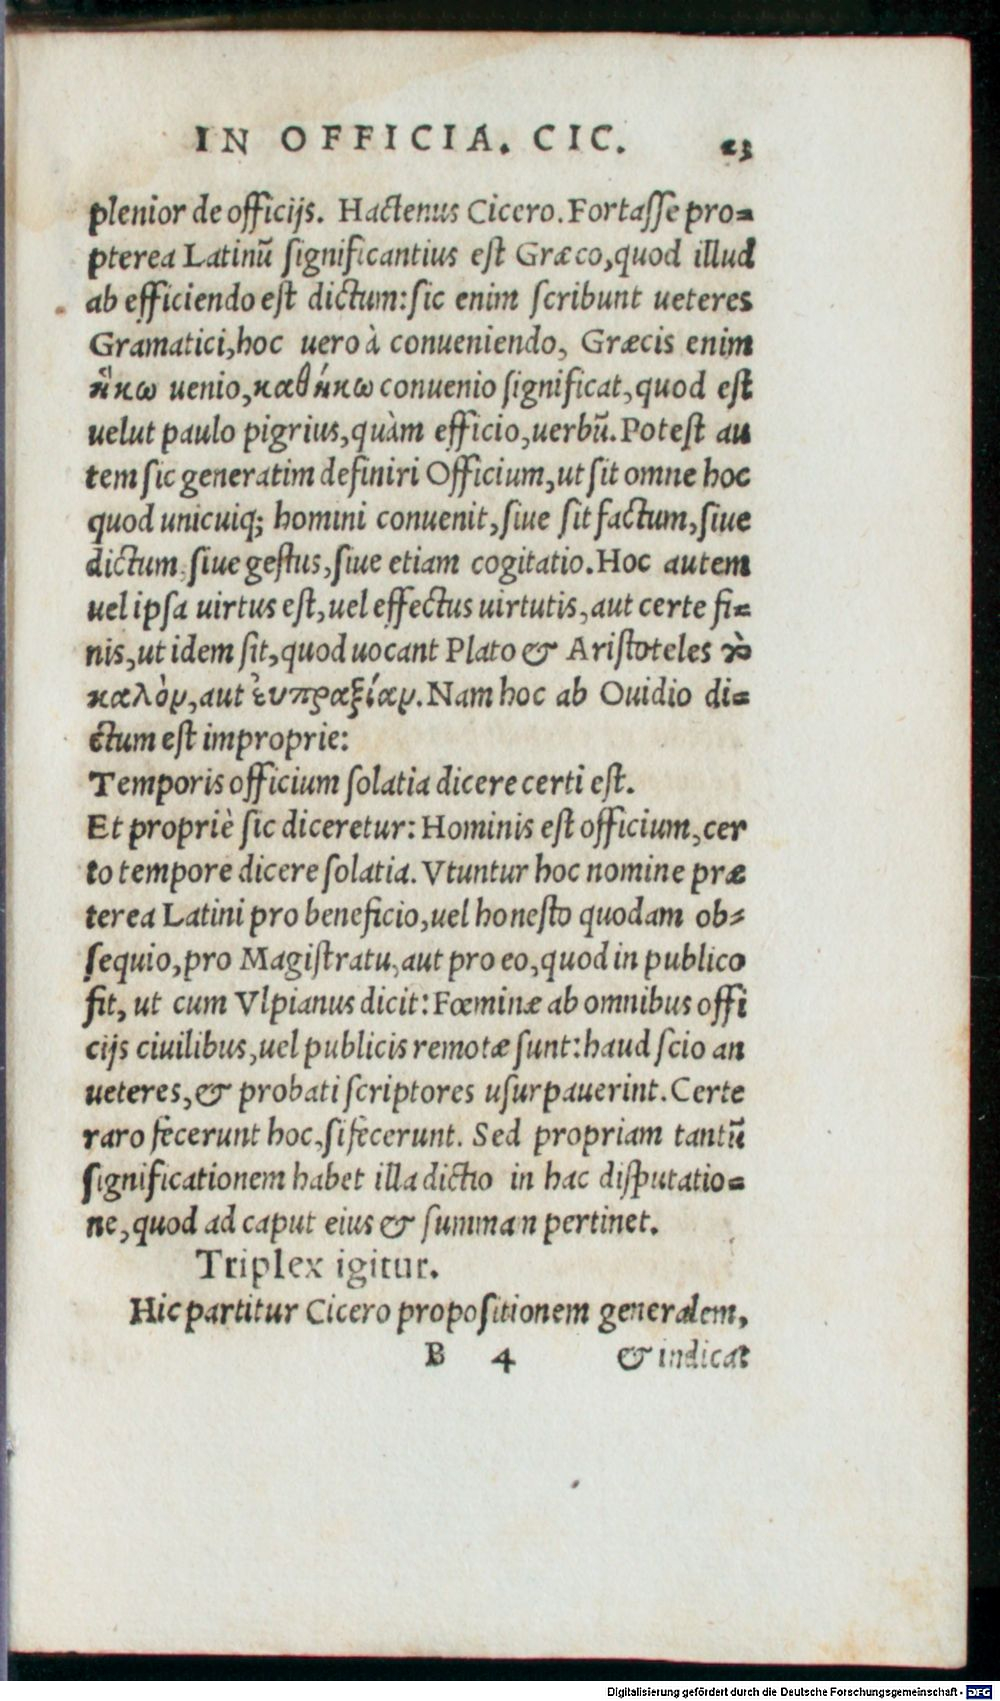 IN OFFICIA. CIC. 23
plenior de officijs. Hactenus Cicero. Fortasse pro=
pterea Latinũ significantius est Græco, quod illud
ab efficiendo est dictum: sic enim scribunt ueteres
Gramatici, hoc uero à conueniendo, Græcis enim
ἥκω uenio, καθήκω conuenio significat, quod est
uelut paulo pigrius, quàm efficio, uerbũ. Potest au
tem sic generatim definiri Officium, ut sit omne hoc
quod unicuiq; homini conuenit, siue sit factum, siue
dictum, siue gestus, siue etiam cogitatio. Hoc autem
uel ipsa uirtus est, uel effectus uirtutis, aut certe fi=
nis, ut idem sit, quod uocant Plato & Aristoteles τὸ
καλὸν, aut ἐυπραξίαν. Nam hoc ab Ouidio di=
ctum est improprie:
Temporis officium solatia dicere certi est.
Et propriè sic diceretur: Hominis est officium, cer
to tempore dicere solatia. Vtuntur hoc nomine præ
terea Latini pro beneficio, uel honesto quodam ob=
sequio, pro Magistratu, aut pro eo, quod in publico
fit, ut cum Vlpianus dicit: Fœminæ ab omnibus offi
cijs ciuilibus, uel publicis remotæ sunt: haud scio an
ueteres, & probati scriptores usurpauerint. Certe
raro fecerunt hoc, si fecerunt. Sed propriam tantũ
significationem habet illa dictio in hac disputatio=
ne, quod ad caput eius & summan pertinet.
Triplex igitur.
Hic partitur Cicero propositionem generalem,
B 4 & indicat
Digitalisierung gefördert durch die Deutsche Forschungsgemeinschaft - DFG